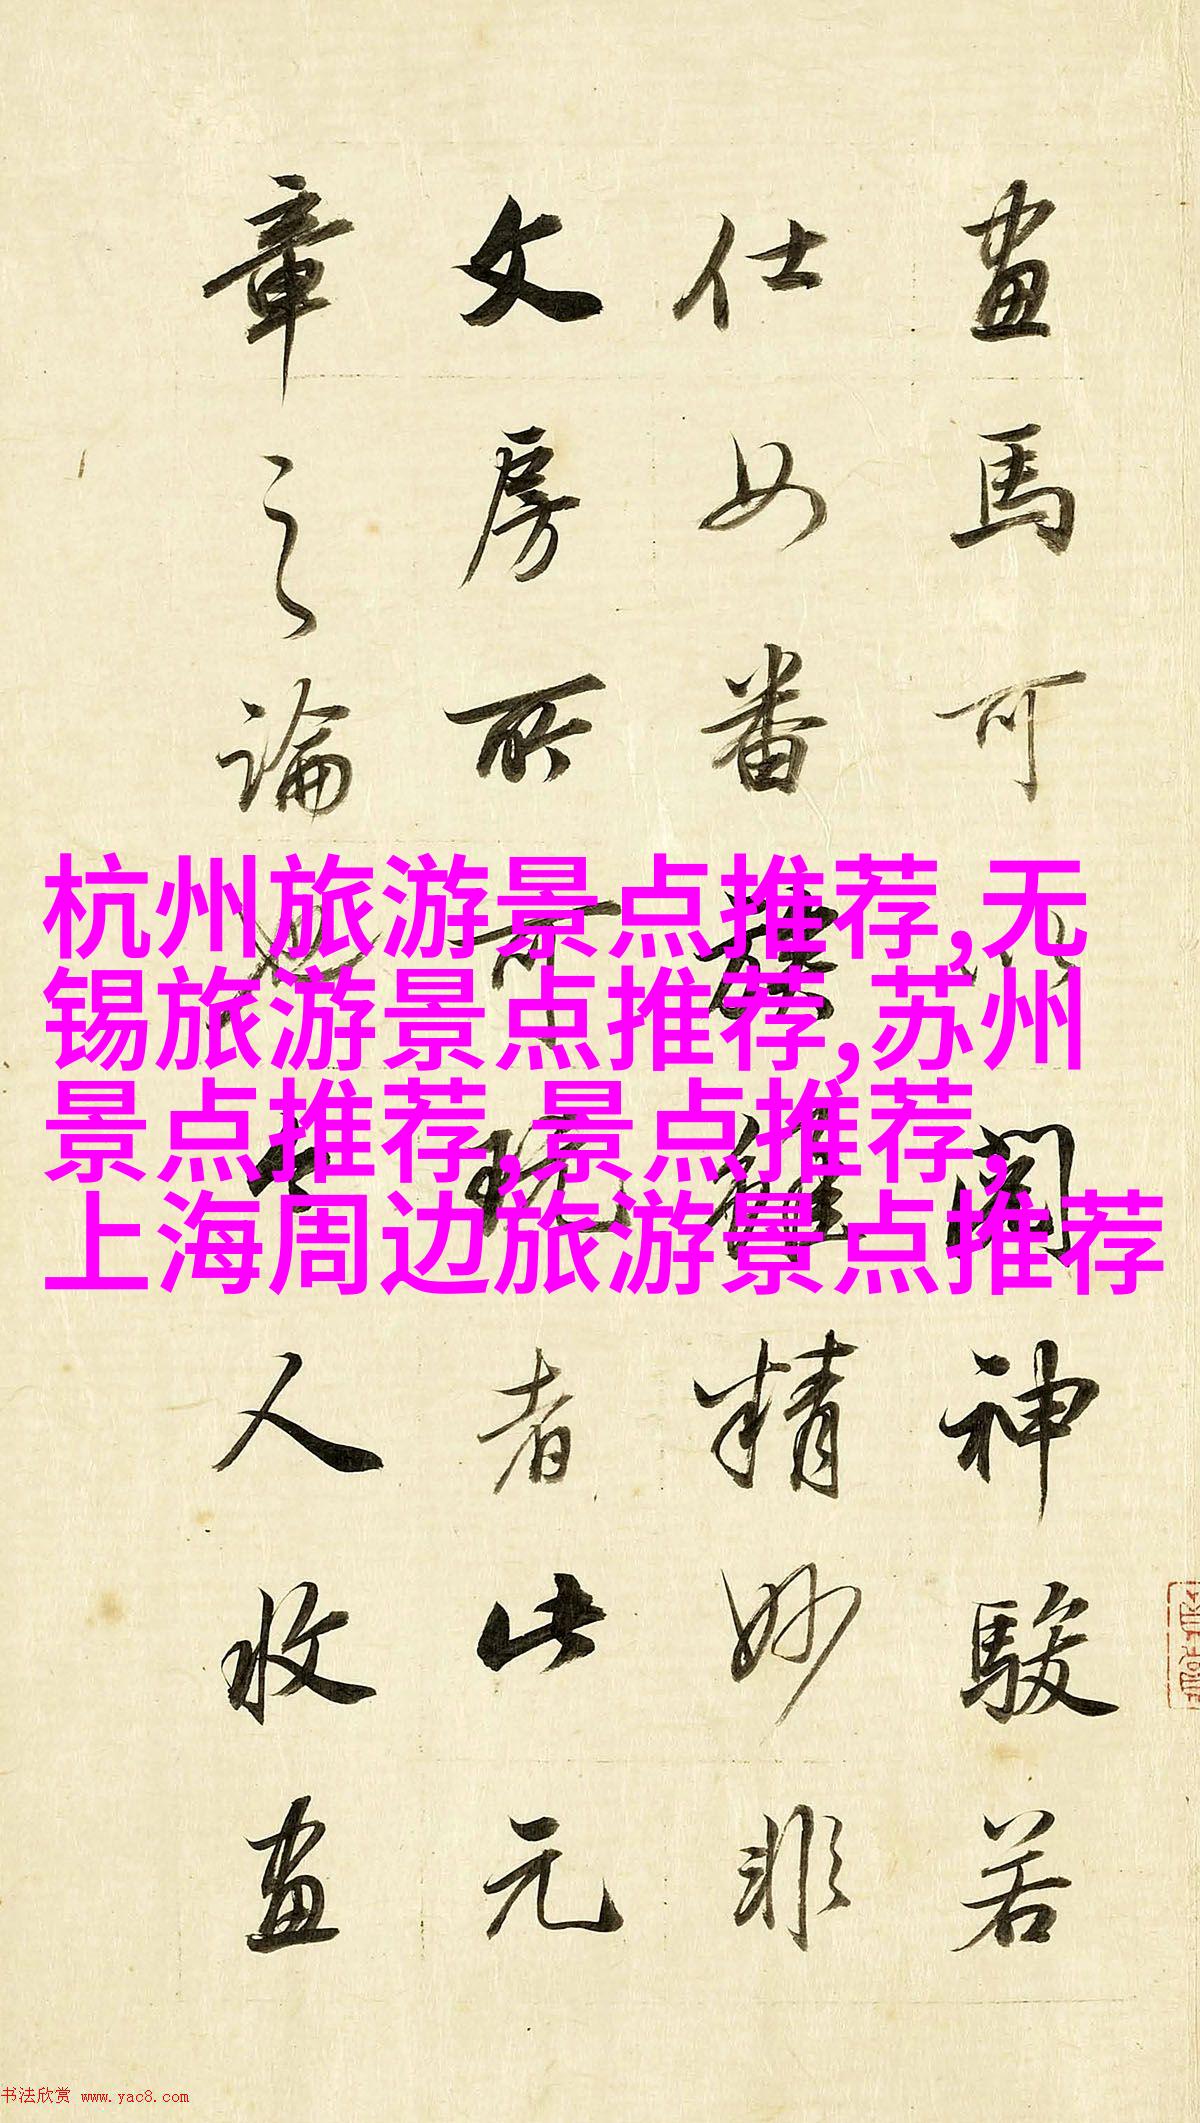 畫馬可以閱神駿若
仕女番族雖精妙非
文房所可玩者此元
章之論也今人收畫
杭州旅游景点推荐,无
锡旅游景点推荐,苏州
景点推荐,景点推荐,
上海周边旅游景点推荐
书法欣赏 www.yac8.com